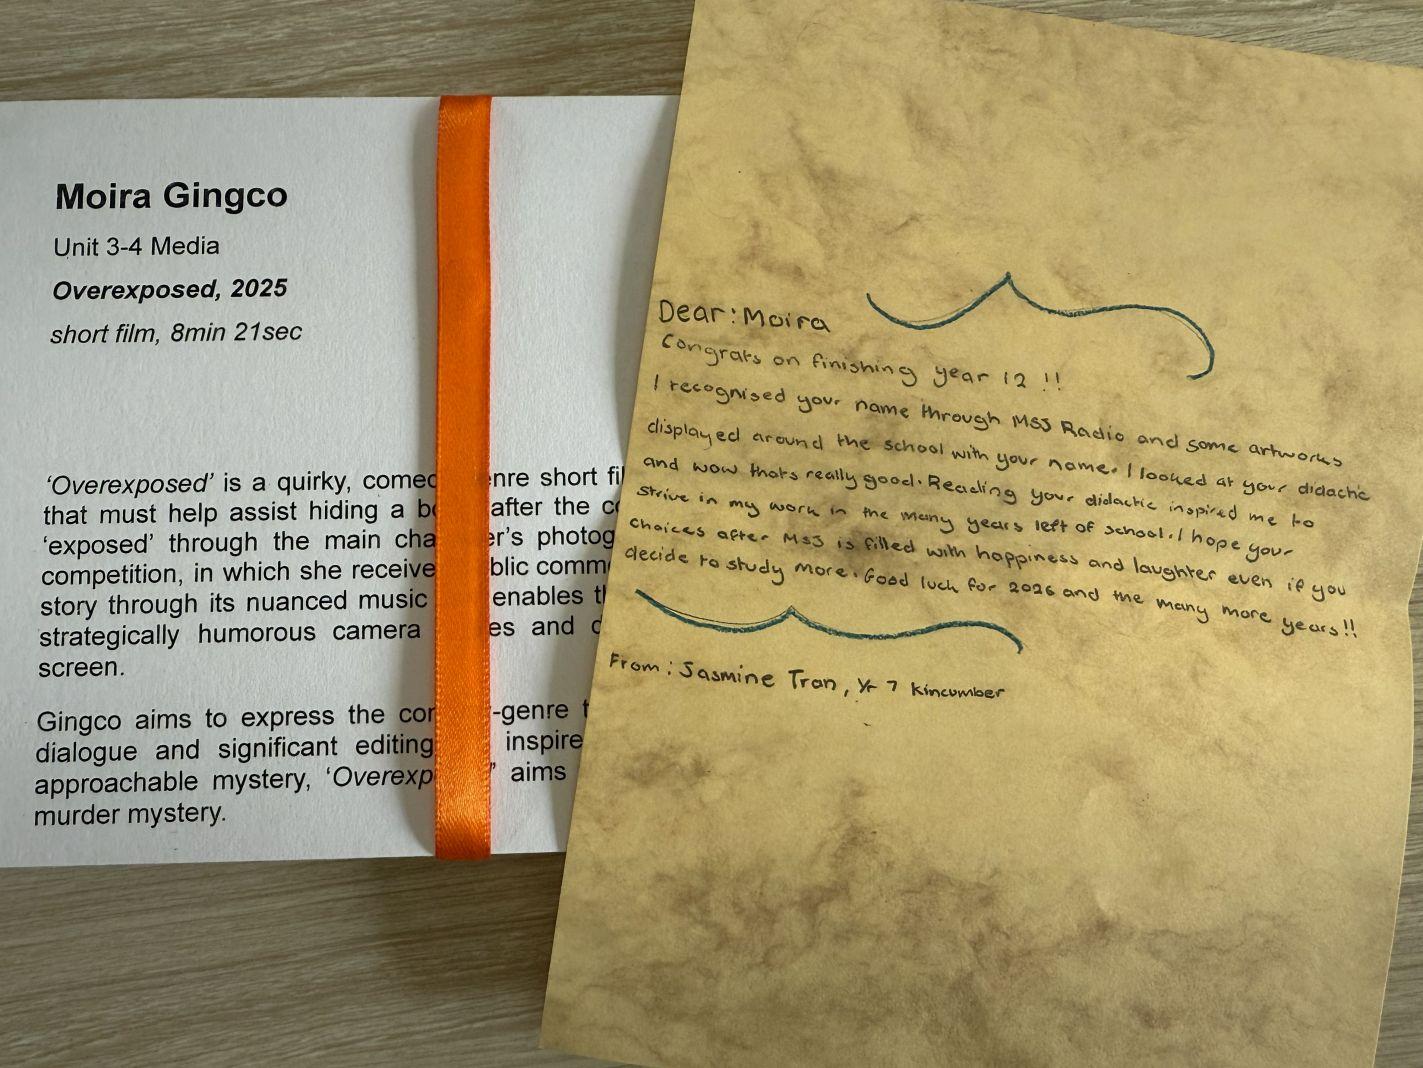 Moira Gingco
Unit 3-4 Media
Overexposed, 2025
short film, 8min 21sec
‘Overexposed’ is a quirky, short
that must help assist hiding a after the
‘exposed’ through the main
competition, in which she
story through its nuanced music enables
strategically humorous camera and
screen.
Gingco aims to express the
dialogue and significant editing
approachable mystery, aims
murder mystery.
Dear: Moira
Congrats on finishing year 12 !!
I recognised your name through MSJ Radio and some artworks
displayed around the school with your name. I looked at your didactic
and wow thats really good. Reading your didactic inspired me to
strive in my work in the many years left of school. I hope your
choices after MSJ is filled with happiness and laughter even if you
decide to study more. Good luck for 2026 and the many more years!!
From: Jasmine Tran, Yr 7 Kincumber